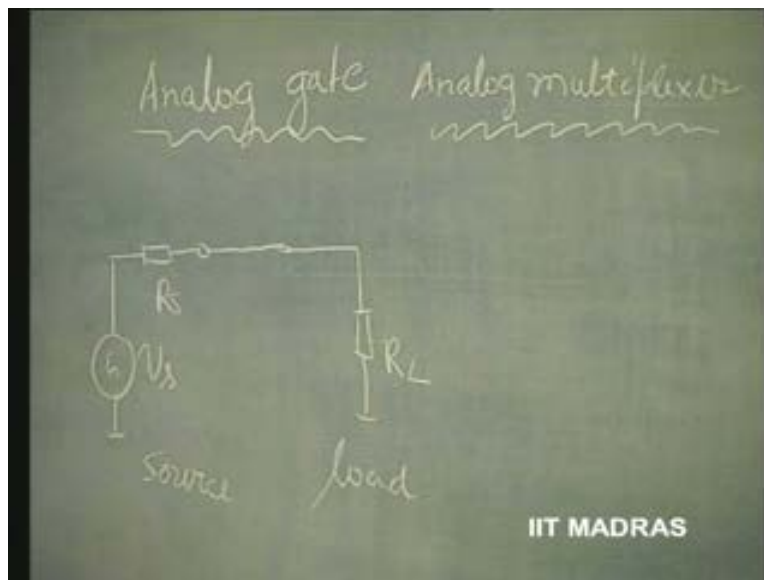 Analog gate Analog multiplexer
Rs
Vs
RL
Source load
IIT MADRAS